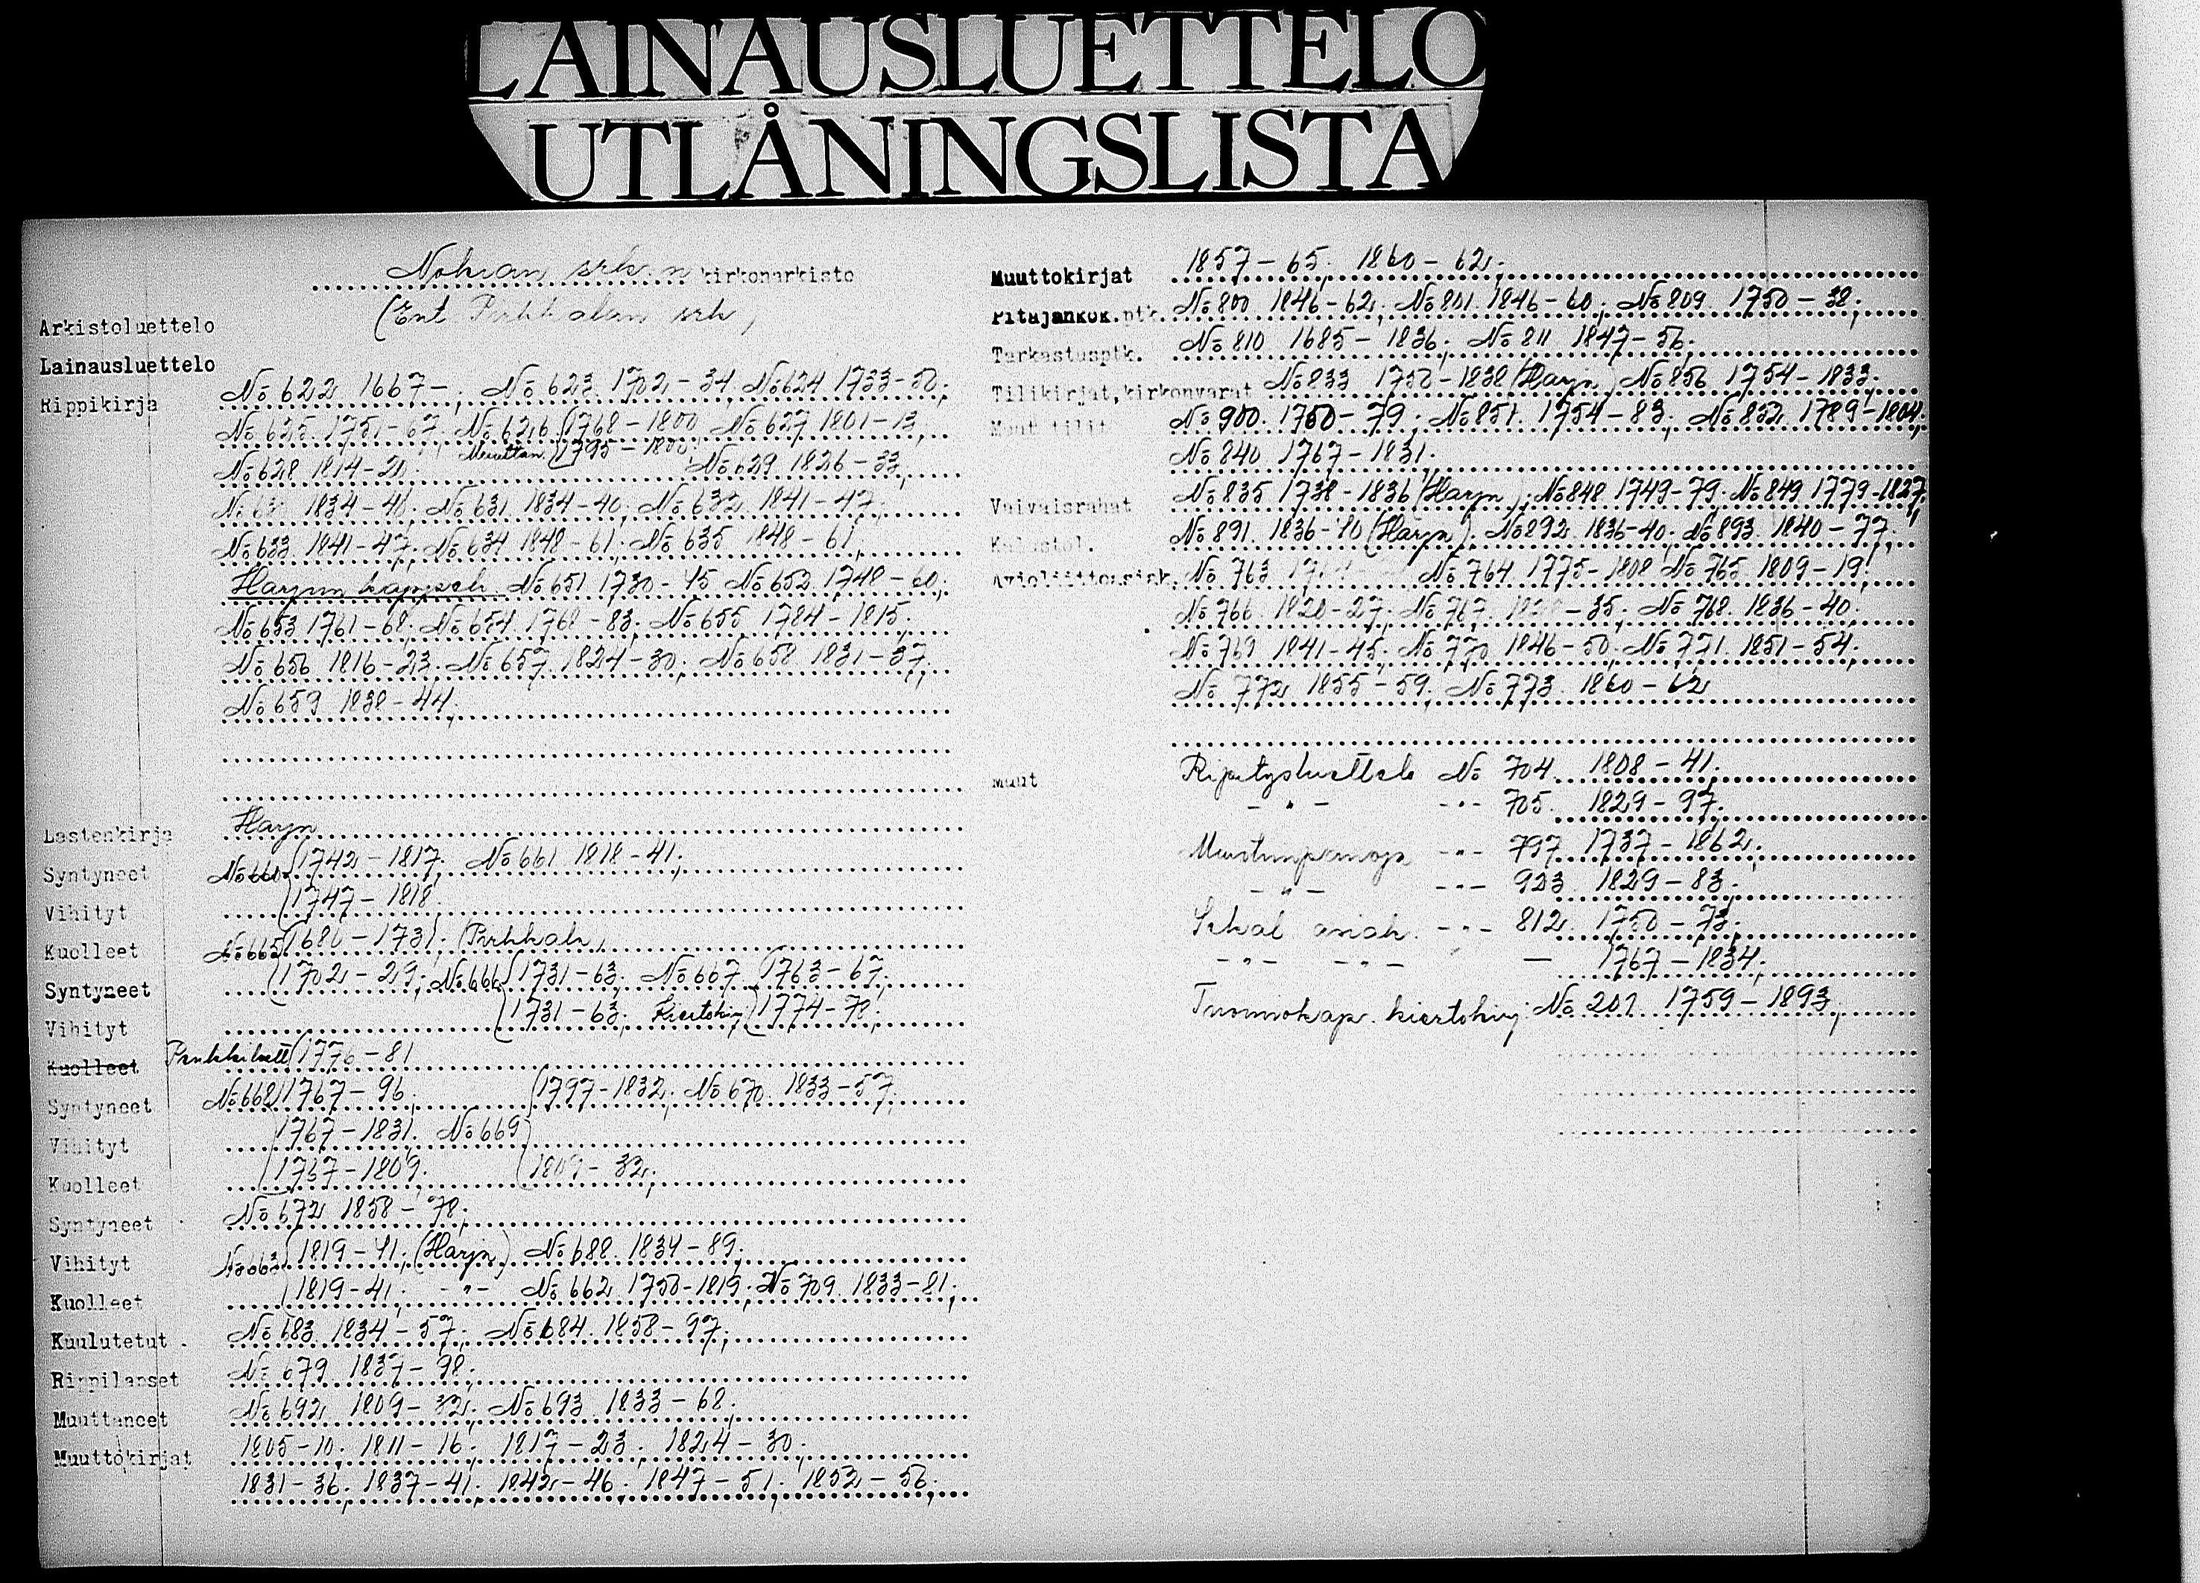 LAINAUSLUETTELO
UTLÅNINGSLISTA
Nokian srk:n kirkonarkisto
(Ent. Pirkkalan srk)
Arkistoluettelo
Lainausluettelo
Rippikirja No 622 1667-; No 623 1702-34, No 624 1733-50;
No 625 1751-67, No 626 (1768-1800 No 627 1801-13,
Muuttan. (1795-1800;
No 628 1814-20; No 629 1826-33,
1834-40; No 631 1834-40; No 632 1841-47;
No 633 1841-47; No 634 1848-61; No 635 1848-61,
Harjun kappseli No 651 1730-45 No 652 1748-60;
No 653 1761-68; No 654 1768-83; No 655 1784-1815;
No 656 1816-23; No 657 1824-30; No 658 1831-37;
No 659 1838-44;
Lastenkirja Harjn
Syntyneet No 660 (1742-1817; No 661 1818-41;
Vihityt (1747-1818.
Kuolleet No 665 (1686-1731; (Pirkkala)
Syntyneet (1702-29; No 666 (1731-63; No 667 (1763-67;
Vihityt (1731-63; Kiertokirj (1774-78;
Kuolleet (1776-81
Syntyneet No 668 (1767-96; (1797-1832; No 670 1833-57;
Vihityt 1767-1831. No 669
Kuolleet (1767-1809; (1809-32;
Syntyneet No 672 1858-78;
Vihityt No 663 (1819-41; (Harjn) No 688 1834-89;
Kuolleet (1819-41; -"- No 662 1750-1819; No 709 1833-81;
Kuulutetut No 683 1834-57; No 684 1858-97;
Rippilapset No 679 1837-98;
Muuttaneet No 692 1809-32; No 693 1833-68;
Muuttokirjat 1805-10; 1811-16; 1817-23; 1824-30;
1831-36; 1837-41; 1842-46; 1847-51; 1852-56;
Muuttokirjat 1857-65; 1860-62;
Pitäjänkok.ptk. No 800 1846-62; No 801 1846-60; No 809 1750-38;
Tarkastusptk. No 810 1685-1836; No 811 1847-56;
Tilikirjat,kirkonvarat No 833 1750-1838 (Harjn) No 856 1754-1833;
Muut tilit No 900 1760-79; No 851 1754-83; No 852 1789-1804;
No 840 1767-1831.
Vaivaisrahat No 835 1738-1836 (Harjn); No 848 1749-79; No 849 1779-1827,
No 891 1836-40 (Harjn); No 892 1836-40; No 893 1840-77;
Avioliittoasiak. No 763 No 764 1775-1808 No 765 1809-19;
No 766 1820-27; No 767 -35; No 768 1836-40;
No 769 1841-45; No 770 1846-50; No 771 1851-54;
No 772 1855-59; No 773 1860-62
Muut Ripitysluettelo No 704 1808-41;
-"- -"- 705 1829-97;
Muistiinpanoja -"- 797 1737-1862;
-"- -"- 923 1829-83;
Sekal. asiak. -"- 812 1750-73;
-"- -"- — 1767-1834;
Tuomiokap. kiertokirj No 201 1759-1893;